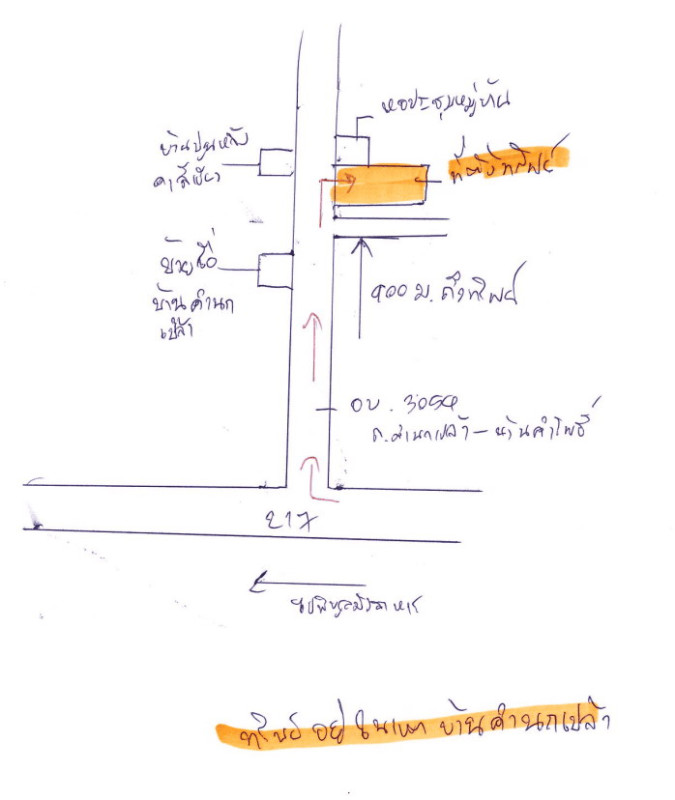 หอประชุมหมู่บ้าน
บ้านปูนหลัง
คาสีเขียว
ที่ตั้งทรัพย์
ป้ายชื่อ
บ้านคำนก
เปล้า
900 ม. ถึงทรัพย์
อบ. 3054
ถ.คำนกเปล้า – บ้านคำโพธิ์
217
ไปพิบูลมังสาหาร
ทรัพย์ อยู่ ในเขต บ้านคำนกเปล้า